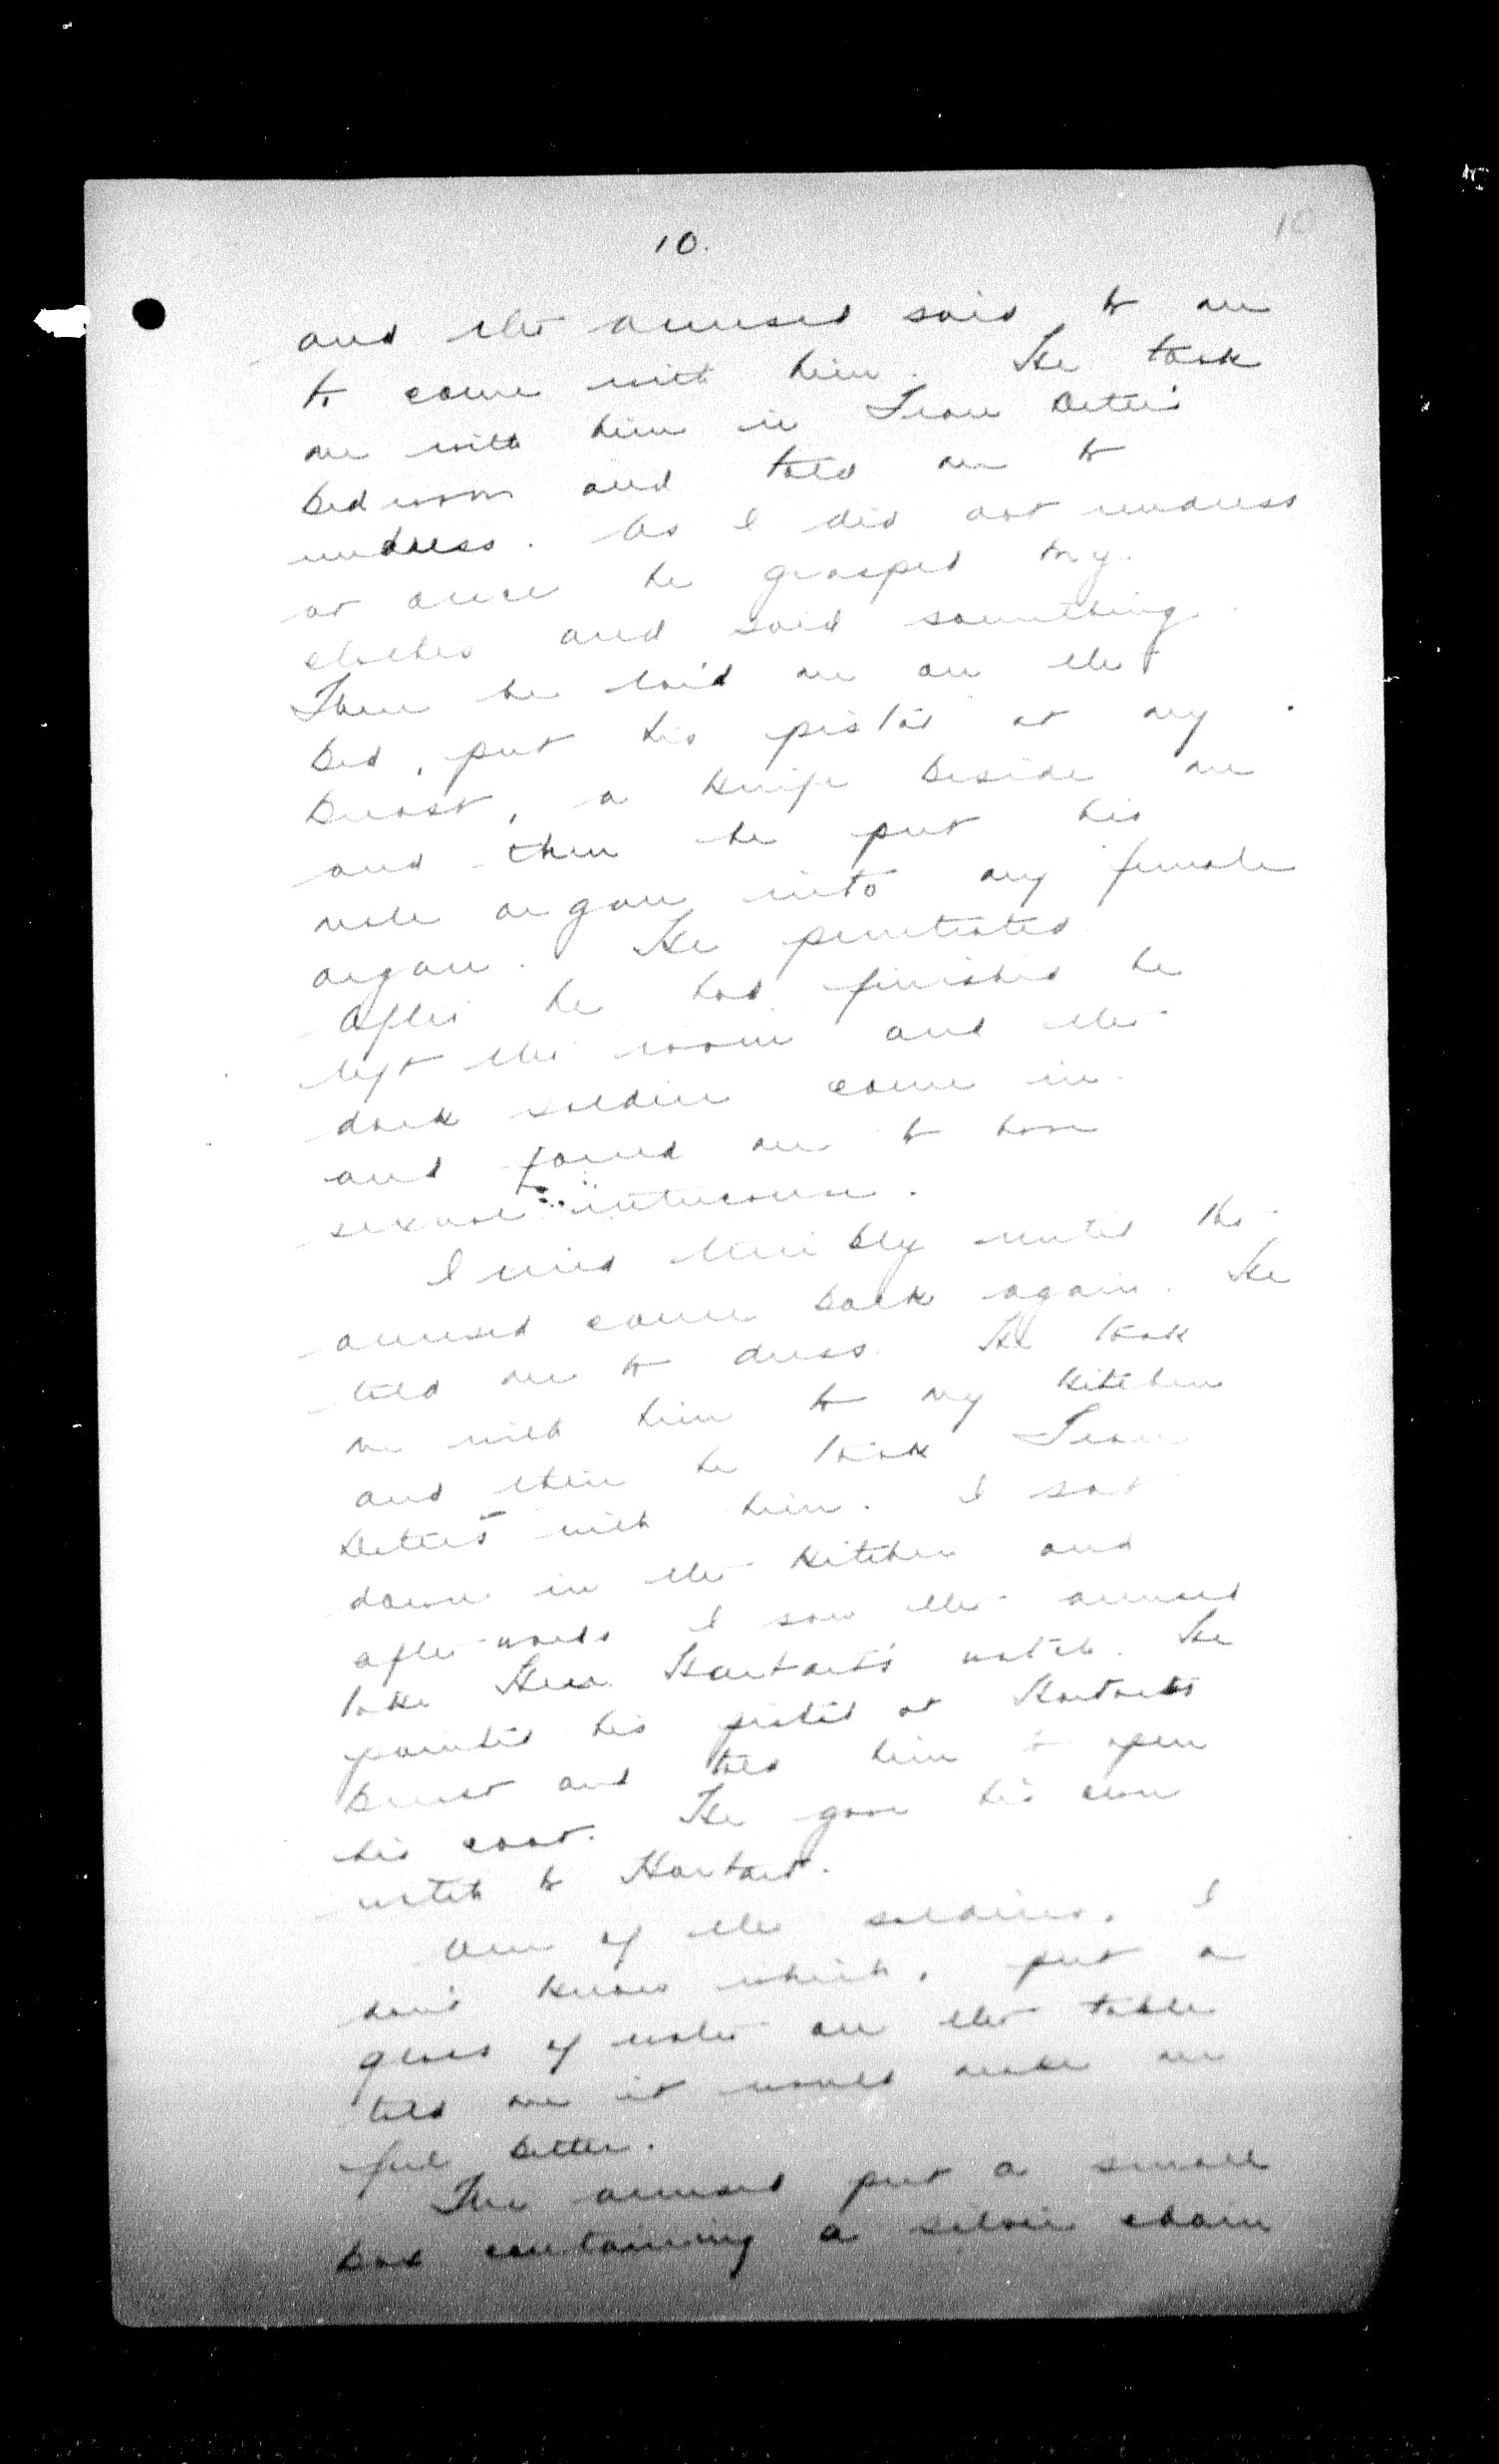 10.
10
and the accused said to me
to come with him. He took
me with him in Frau Detter's
bedroom and told me to
undress. As I did not undress
at once he grasped my
clothes and said something.
Then he laid me on the
bed, put his pistol at my
breast, a knife beside me
and then he put his
male organ into my female
organ. He penetrated.
After he had finished he
left the room and the
dark soldier came in
and forced me to have
sexual intercourse.
I cried terribly until the
accused came back again. He
told me to dress. He took
me with him to my kitchen
and then he took Frau
Detter with him. I sat
down in the kitchen and
afterwards I saw the accused
take Herr watch. He
pointed his pistol at
breast and told him to open
his coat. He gave his own
watch to
One of the soldiers, I
don't know which, put a
glass of water on the table
told me it would make me
feel better.
The accused put a small
box containing a silver chain